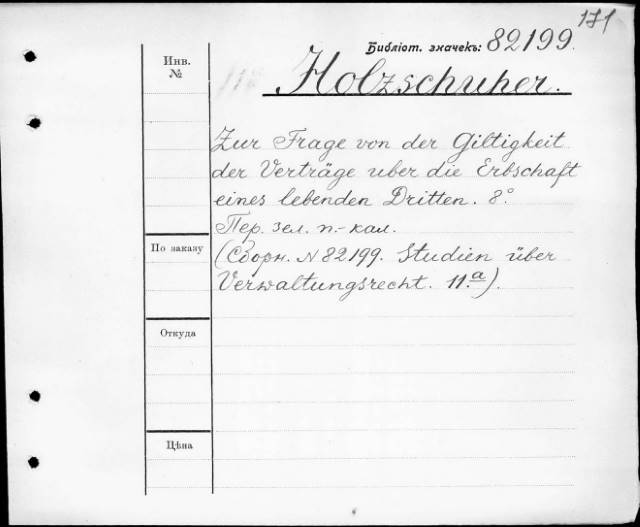 171
Библіот. значекъ: 82199.
Инв. №
Holzschuher.
Zur Frage von der Giltigkeit
der Verträge uber die Erbschaft
eines lebenden Dritten. 8°
Пер. зел. п.-кал.
По заказу
(Сборн. N 82199. Studien über
Verwaltungsrecht. 11.a).
Откуда
Цѣна